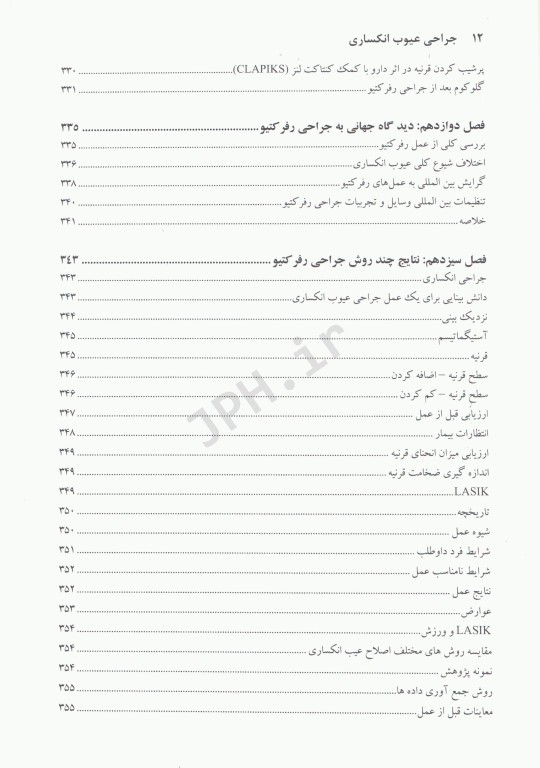 ۱۲ جراحی عیوب انکساری
پرشیب کردن قرنیه در اثر دارو با کمک کنتاکت لنز (CLAPIKS) ۳۳۰
گلوکوم بعد از جراحی رفرکتیو ۳۳۱
فصل دوازدهم: دید گاه جهانی به جراحی رفرکتیو ۳۳۵
بررسی کلی از عمل رفرکتیو ۳۳۵
اختلاف شیوع کلی عیوب انکساری ۳۳۶
گرایش بین المللی به عمل‌های رفرکتیو ۳۳۸
تنظیمات بین المللی وسایل و تجربیات جراحی رفرکتیو ۳۴۰
خلاصه ۳۴۱
فصل سیزدهم: نتایج چند روش جراحی رفرکتیو ۳۴۳
جراحی انکساری ۳۴۳
دانش بینایی برای یک عمل جراحی عیوب انکساری ۳۴۳
نزدیک بینی ۳۴۴
آستیگماتیسم ۳۴۵
قرنیه ۳۴۵
سطح قرنیه – اضافه کردن ۳۴۶
سطح قرنیه – کم کردن ۳۴۶
ارزیابی قبل از عمل ۳۴۷
انتظارات بیمار ۳۴۸
ارزیابی میزان انحنای قرنیه ۳۴۹
اندازه گیری ضخامت قرنیه ۳۴۹
LASIK ۳۴۹
تاریخچه ۳۵۰
شیوه عمل ۳۵۰
شرایط فرد داوطلب ۳۵۱
شرایط نامناسب عمل ۳۵۲
نتایج عمل ۳۵۲
عوارض ۳۵۳
LASIK و ورزش ۳۵۴
مقایسه روش های مختلف اصلاح عیب انکساری ۳۵۴
نمونه پژوهش ۳۵۴
روش جمع آوری داده ها ۳۵۵
معاینات قبل از عمل ۳۵۵
JPH.ir